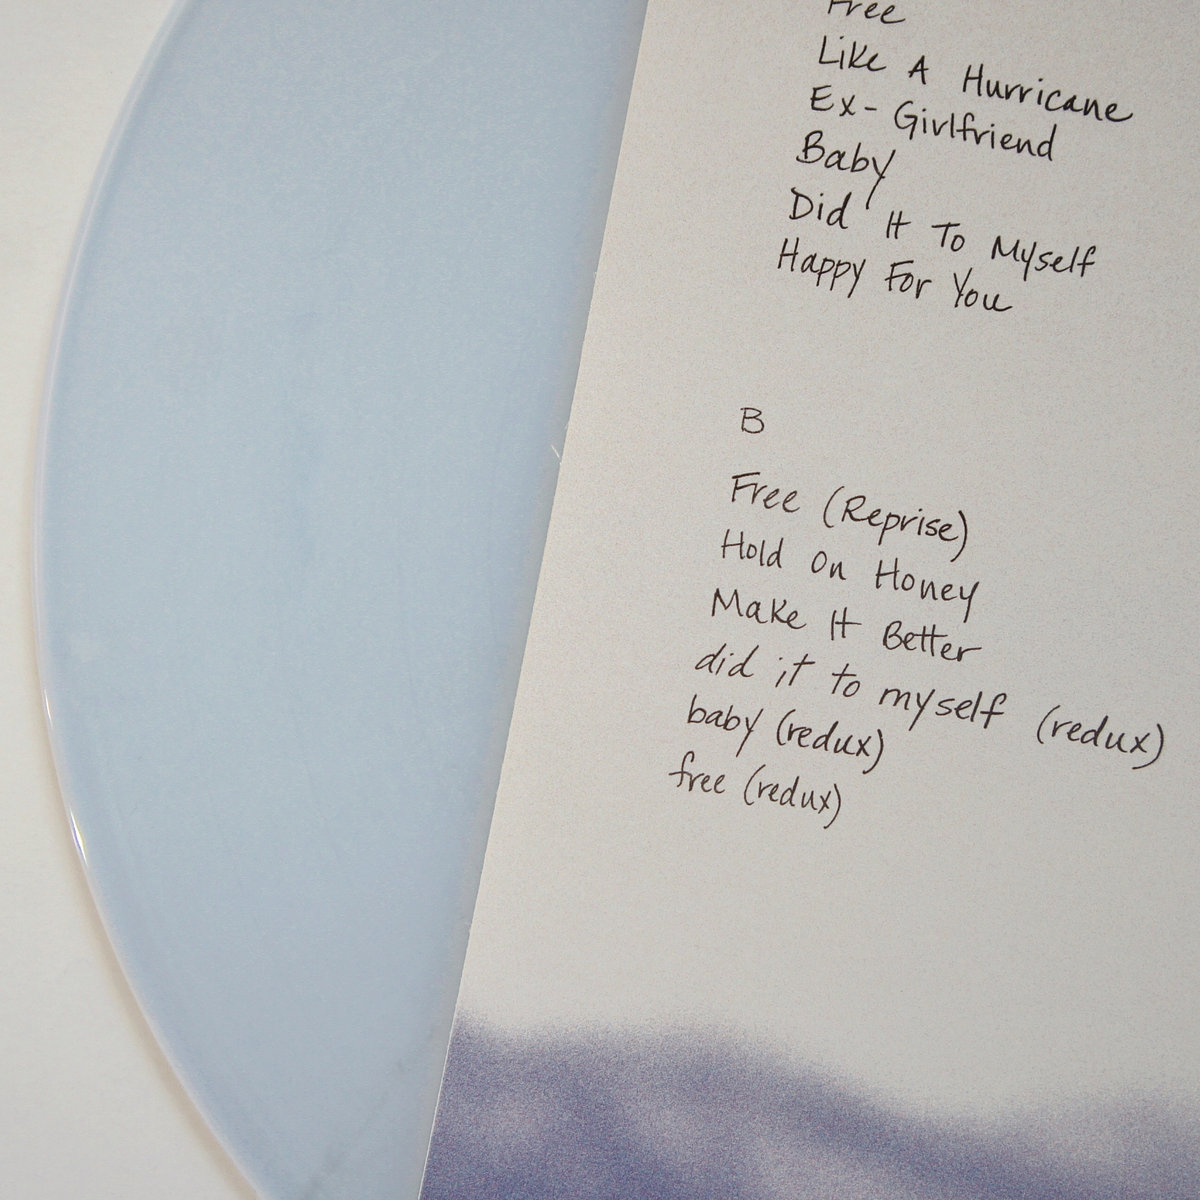 Free
Like A Hurricane
Ex-Girlfriend
Baby
Did It To Myself
Happy For You
B
Free (Reprise)
Hold On Honey
Make It Better
did it to myself (redux)
baby (redux)
free (redux)